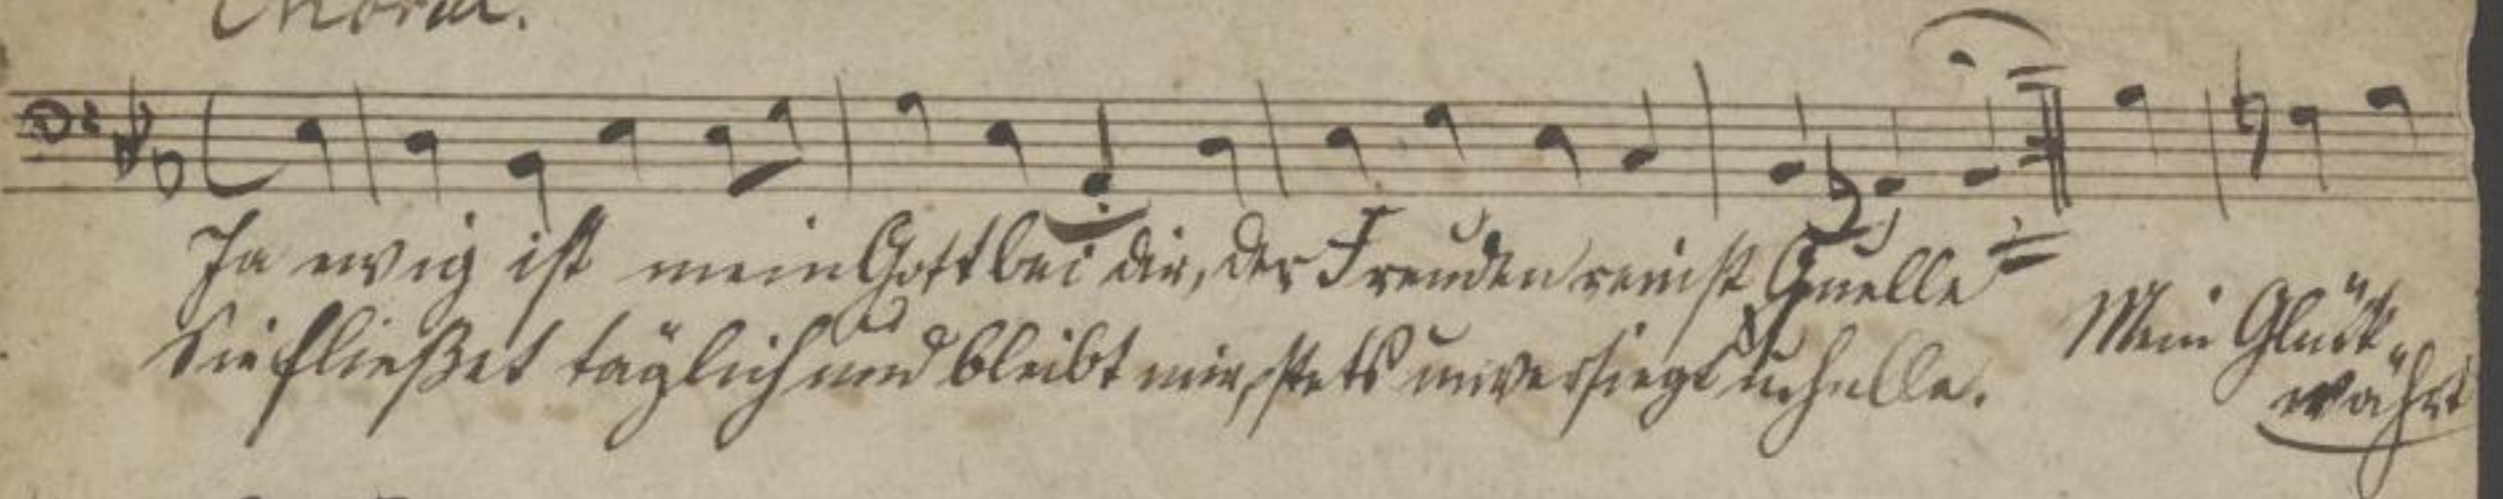 Choral.
Ja ewig ist mein Gott bei dir, der Freuden reinst Quelle
Sie fließet täglich und bleibt mir, stets unversiegt u. helle.
Mein Glück
währt